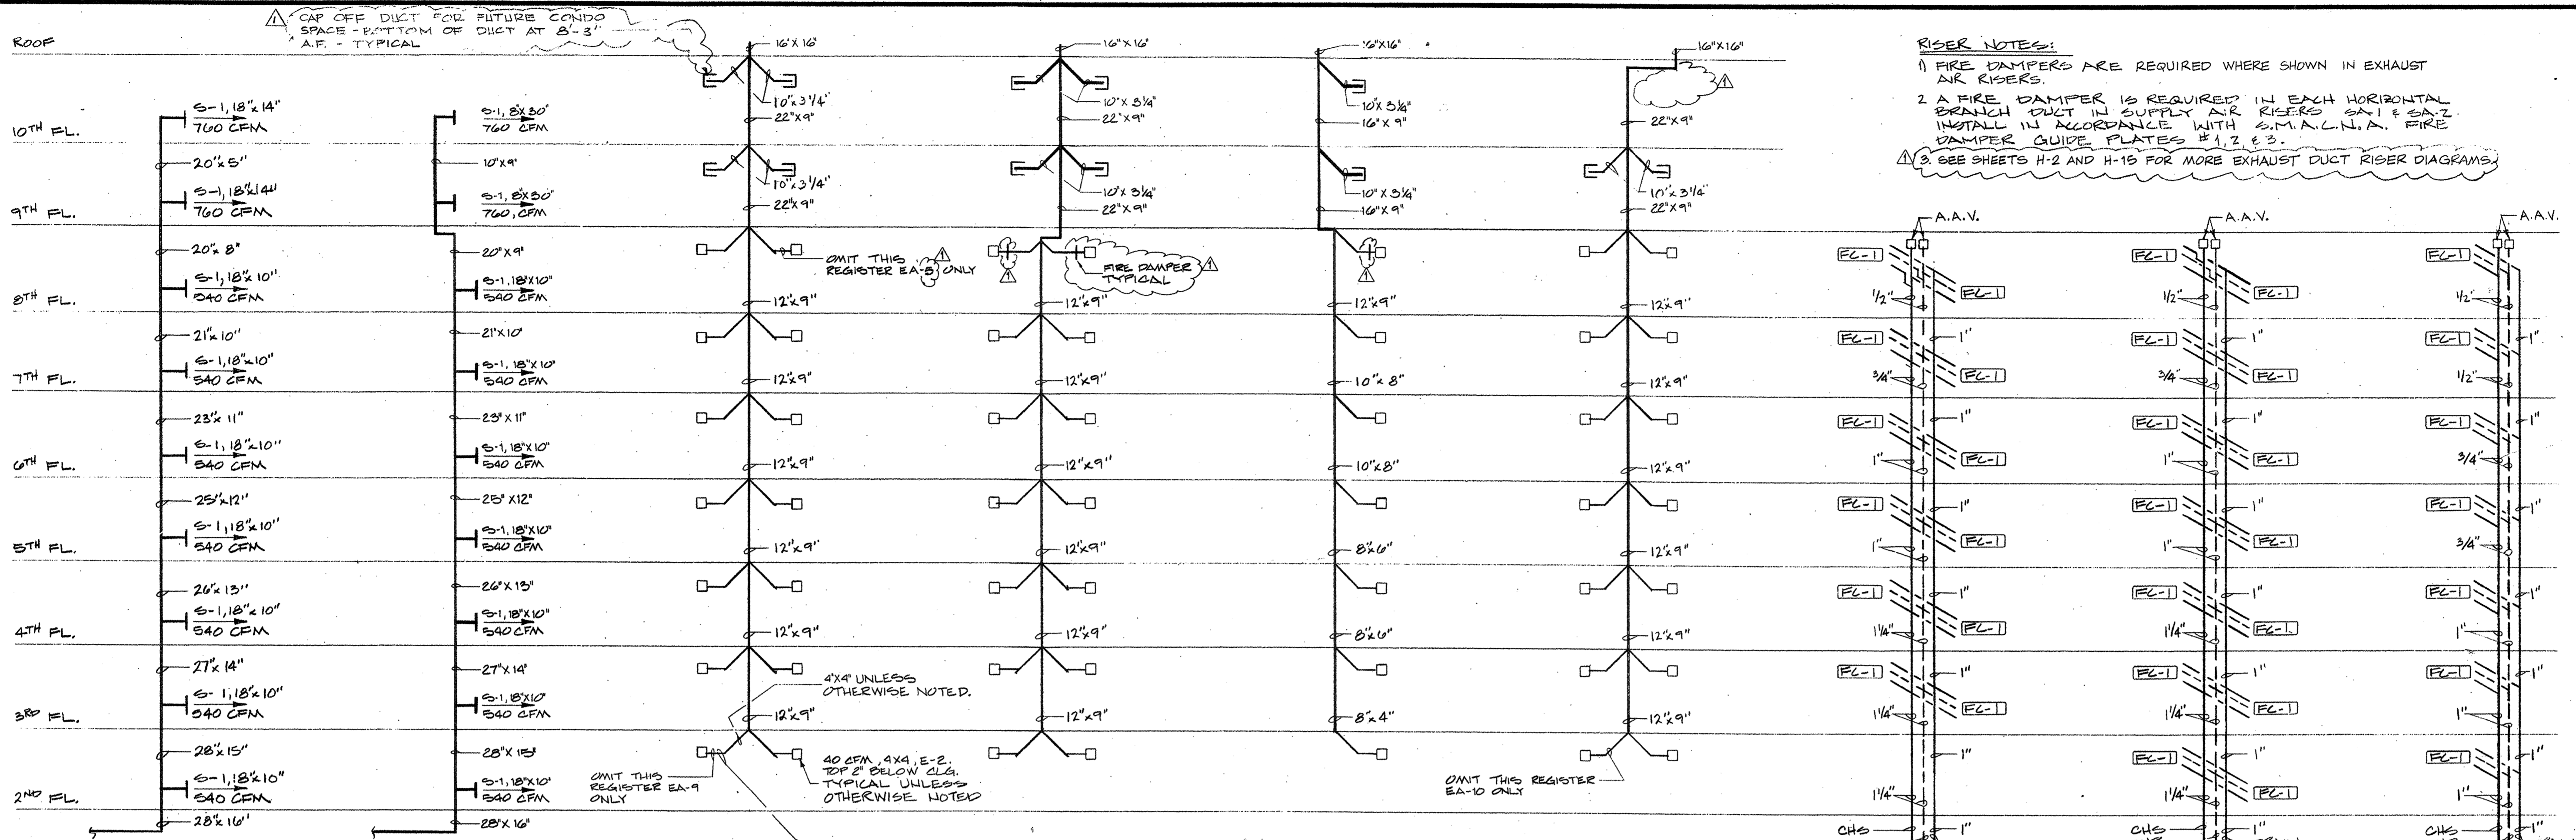 CAP OFF DUCT FOR FUTURE CONDO
SPACE - BOTTOM OF DUCT AT 8'-3"
A.F. - TYPICAL
ROOF
10TH FL.
9TH FL.
8TH FL.
7TH FL.
6TH FL.
5TH FL.
4TH FL.
3RD FL.
2ND FL.
S-1, 18"x14"
760 CFM
20"x5"
S-1, 18"x14"
760 CFM
20"x8"
S-1, 18"x10"
540 CFM
21"x10"
S-1, 18"x10"
540 CFM
23"x11"
S-1, 18"x10"
540 CFM
25"x12"
S-1, 18"x10"
540 CFM
26"x13"
S-1, 18"x10"
540 CFM
27"x14"
S-1, 18"x10"
540 CFM
28"x15"
S-1, 18"x10"
540 CFM
28"x16"
S-1, 8"X30"
760 CFM
10"x9"
S-1, 8"X30"
760 CFM
20"X9"
S-1, 18"X10"
540 CFM
21"X10"
S-1, 18"X10"
540 CFM
23"X11"
S-1, 18"X10"
540 CFM
25"X12"
S-1, 18"X10"
540 CFM
26"X13"
S-1, 18"X10"
540 CFM
27"X14"
S-1, 18"X10"
540 CFM
28"X15"
S-1, 18"X10"
540 CFM
28"X16"
16"X16"
10"x3 1/4"
22"X9"
10"x3 1/4"
22"X9"
OMIT THIS
REGISTER EA-5 ONLY
12"x9"
12"x9"
12"x9"
12"x9"
12"x9"
4"X4" UNLESS
OTHERWISE NOTED.
12"x9"
OMIT THIS
REGISTER EA-9
ONLY
40 CFM, 4X4, E-2.
TOP 2" BELOW CLG.
TYPICAL UNLESS
OTHERWISE NOTED
16"X16"
10"X3 1/4"
22"X9"
10"X3 1/4"
22"X9"
FIRE DAMPER
TYPICAL
12"x9"
12"x9"
12"x9"
12"x9"
12"x9"
12"x9"
16"X16"
10"X3 1/4"
16"X9"
10"X3 1/4"
16"X9"
12"x9"
10"x8"
10"x8"
8"x6"
8"x6"
8"x4"
16"X16"
22"X9"
10"X3 1/4"
22"X9"
12"x9"
12"x9"
12"x9"
12"x9"
12"x9"
12"x9"
OMIT THIS REGISTER
EA-10 ONLY
RISER NOTES:
1) FIRE DAMPERS ARE REQUIRED WHERE SHOWN IN EXHAUST
AIR RISERS.
2 A FIRE DAMPER IS REQUIRED IN EACH HORIZONTAL
BRANCH DUCT IN SUPPLY AIR RISERS SA-1 & SA-2.
INSTALL IN ACCORDANCE WITH S.M.A.C.N.A. FIRE
DAMPER GUIDE PLATES #1, 2 & 3.
3. SEE SHEETS H-2 AND H-15 FOR MORE EXHAUST DUCT RISER DIAGRAMS
A.A.V.
FC-1
FC-1
1/2"
FC-1
1"
FC-1
3/4"
FC-1
1"
FC-1
1"
FC-1
1"
FC-1
1"
FC-1
1"
FC-1
1 1/4"
FC-1
1"
FC-1
1 1/4"
1"
1 1/4"
CHS
1"
A.A.V.
FC-1
FC-1
1/2"
FC-1
1"
FC-1
3/4"
FC-1
1"
FC-1
1"
FC-1
1"
FC-1
1"
FC-1
1"
FC-1
1 1/4"
FC-1
1"
FC-1
1 1/4"
FC-1
1"
FC-1
1 1/4"
CHS
1"
A.A.V.
FC-1
1/2"
FC-1
1"
1/2"
FC-1
1"
3/4"
FC-1
1"
3/4"
FC-1
1"
1"
FC-1
1"
1"
FC-1
1"
1"
CHS
1"